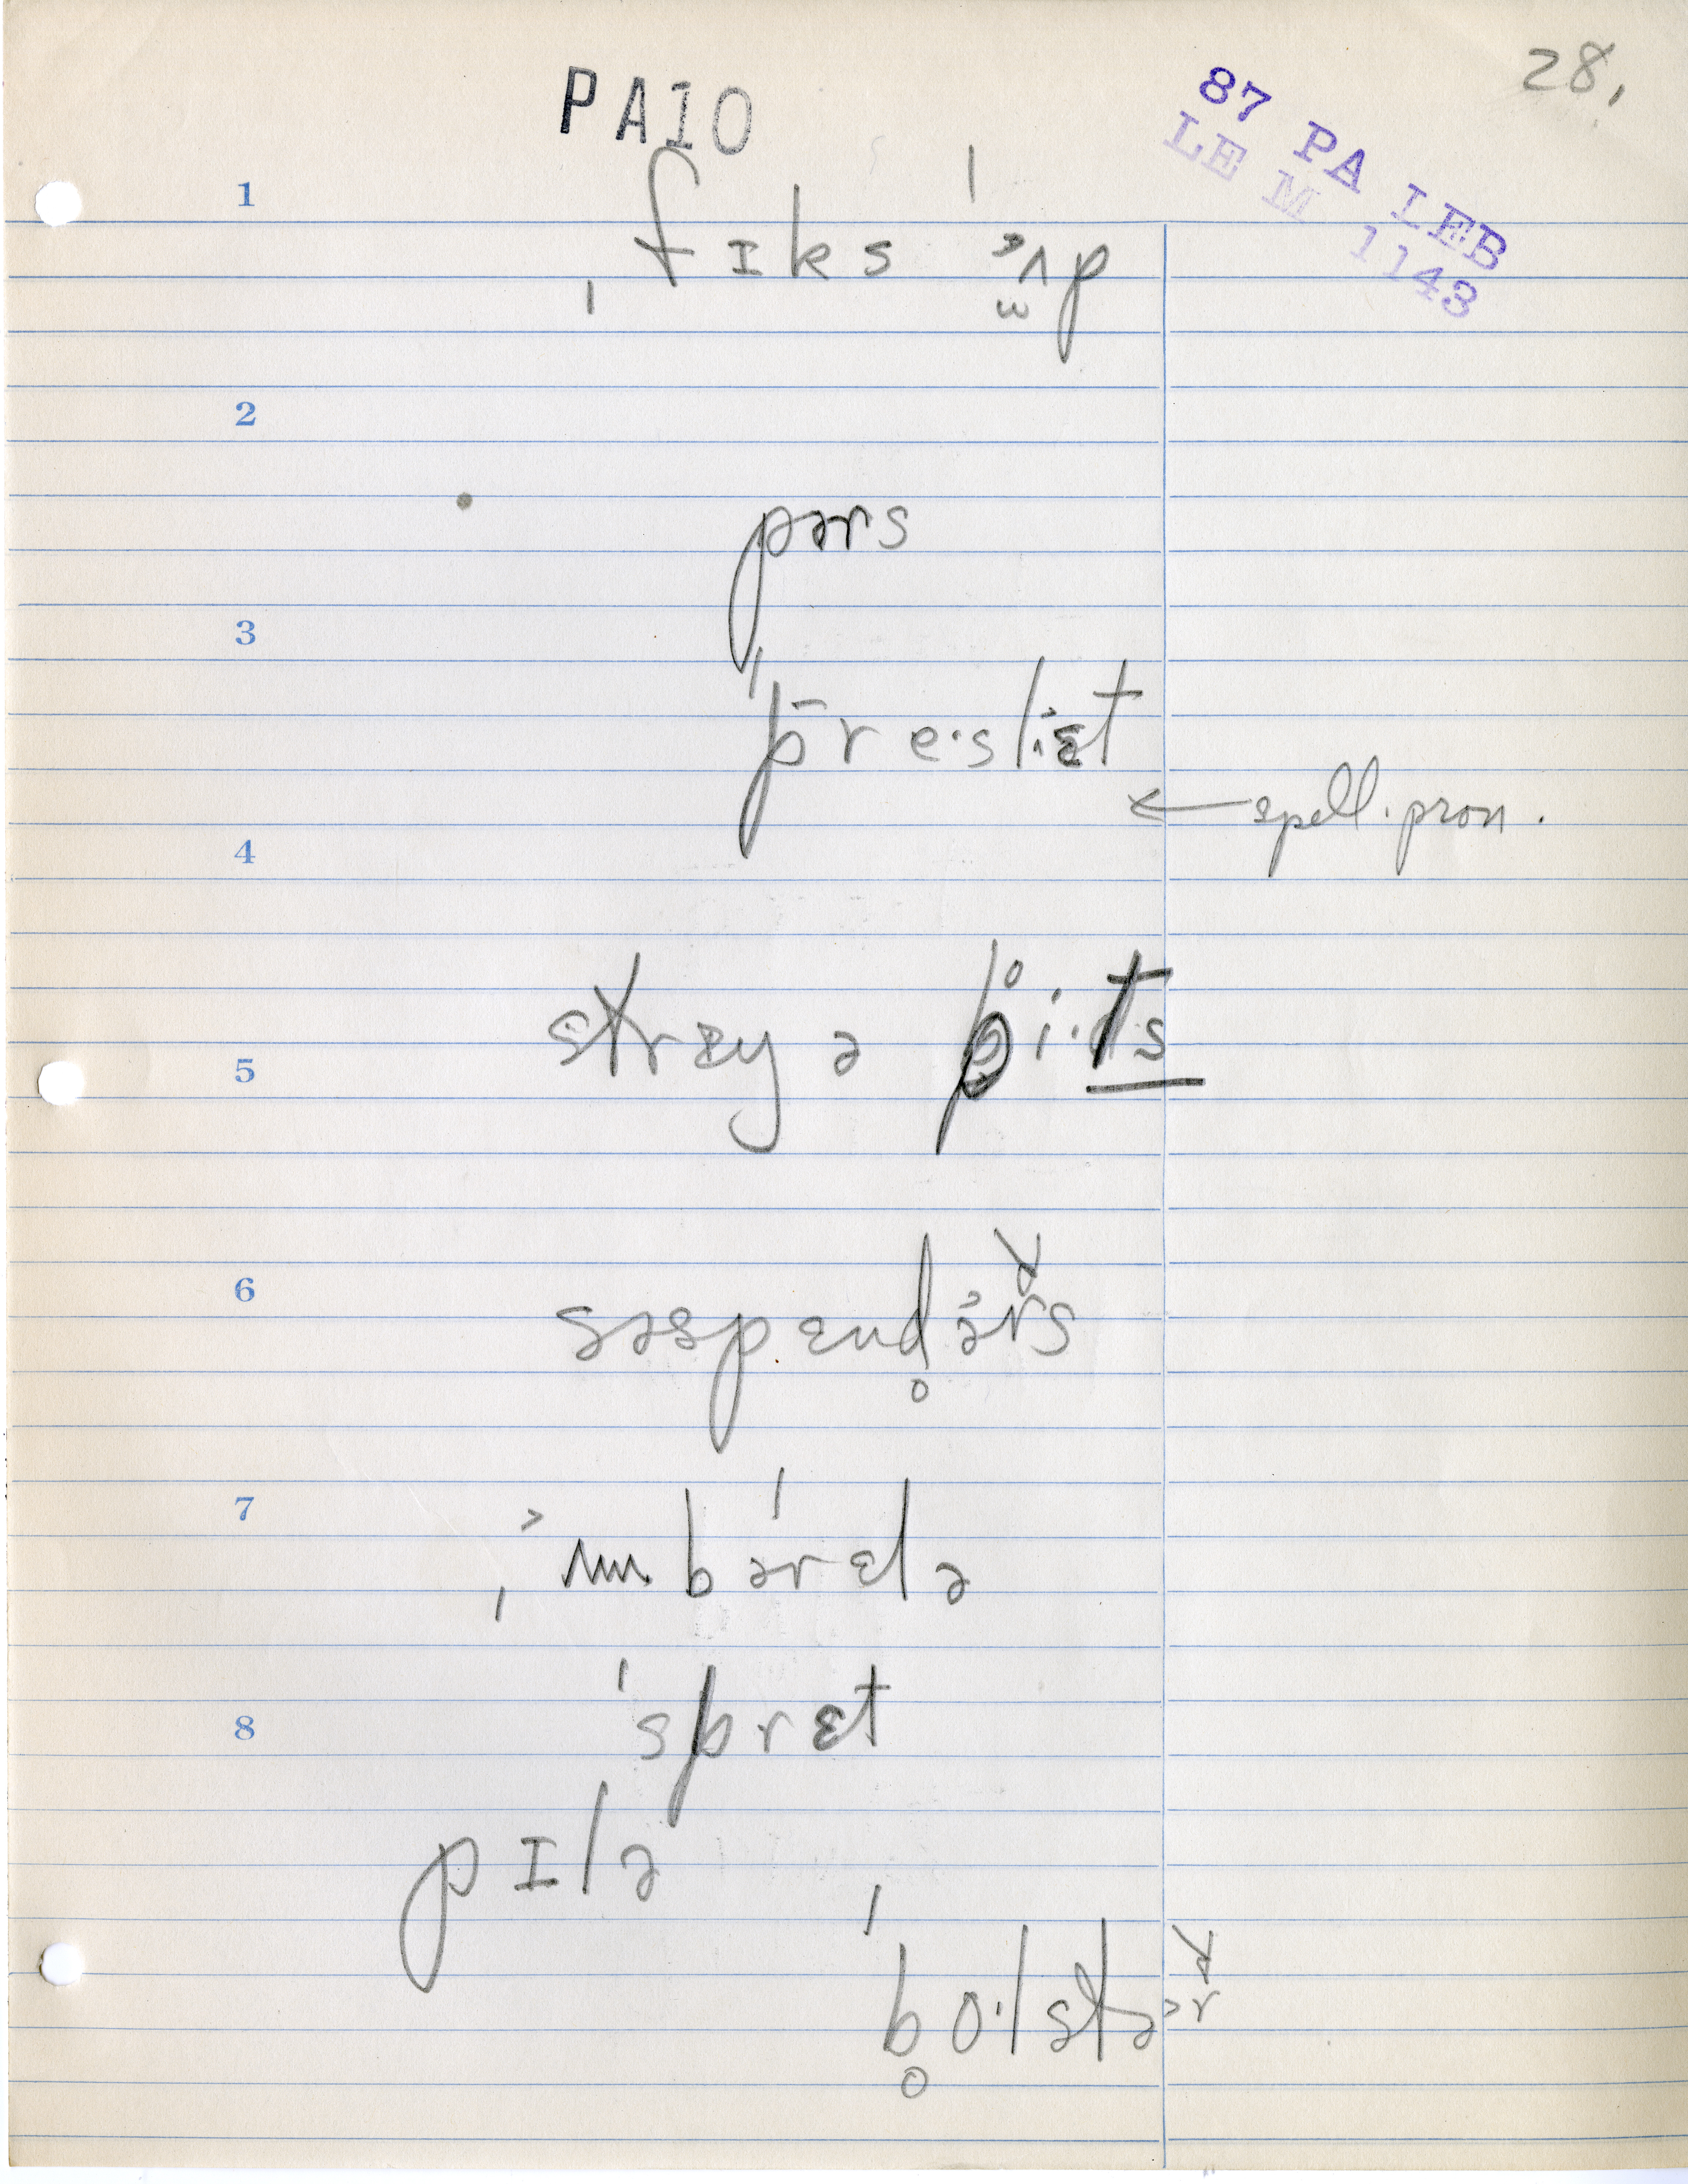 28.
PA10
87 PA LEB
LE M 1143
1
ˌfɪks ˈʌp
2
pərs
3
ˈpre·slɛt
← spell. pron.
4
strɛŋ ə b̥i·ts
5
6
səspɛnd̥ərs
7
ˌʌmˈbərɛlə
ˈsprɛt
8
pɪlə
ˈb̥o·lstər